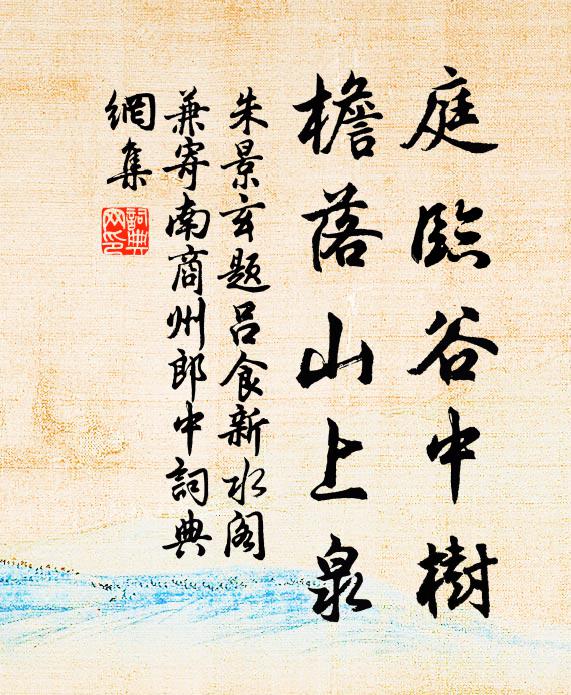 庭臨谷中樹
檐落山上泉
朱景玄題呂食新水阁
兼寄南商州郎中詞典
網集
詞典
网印